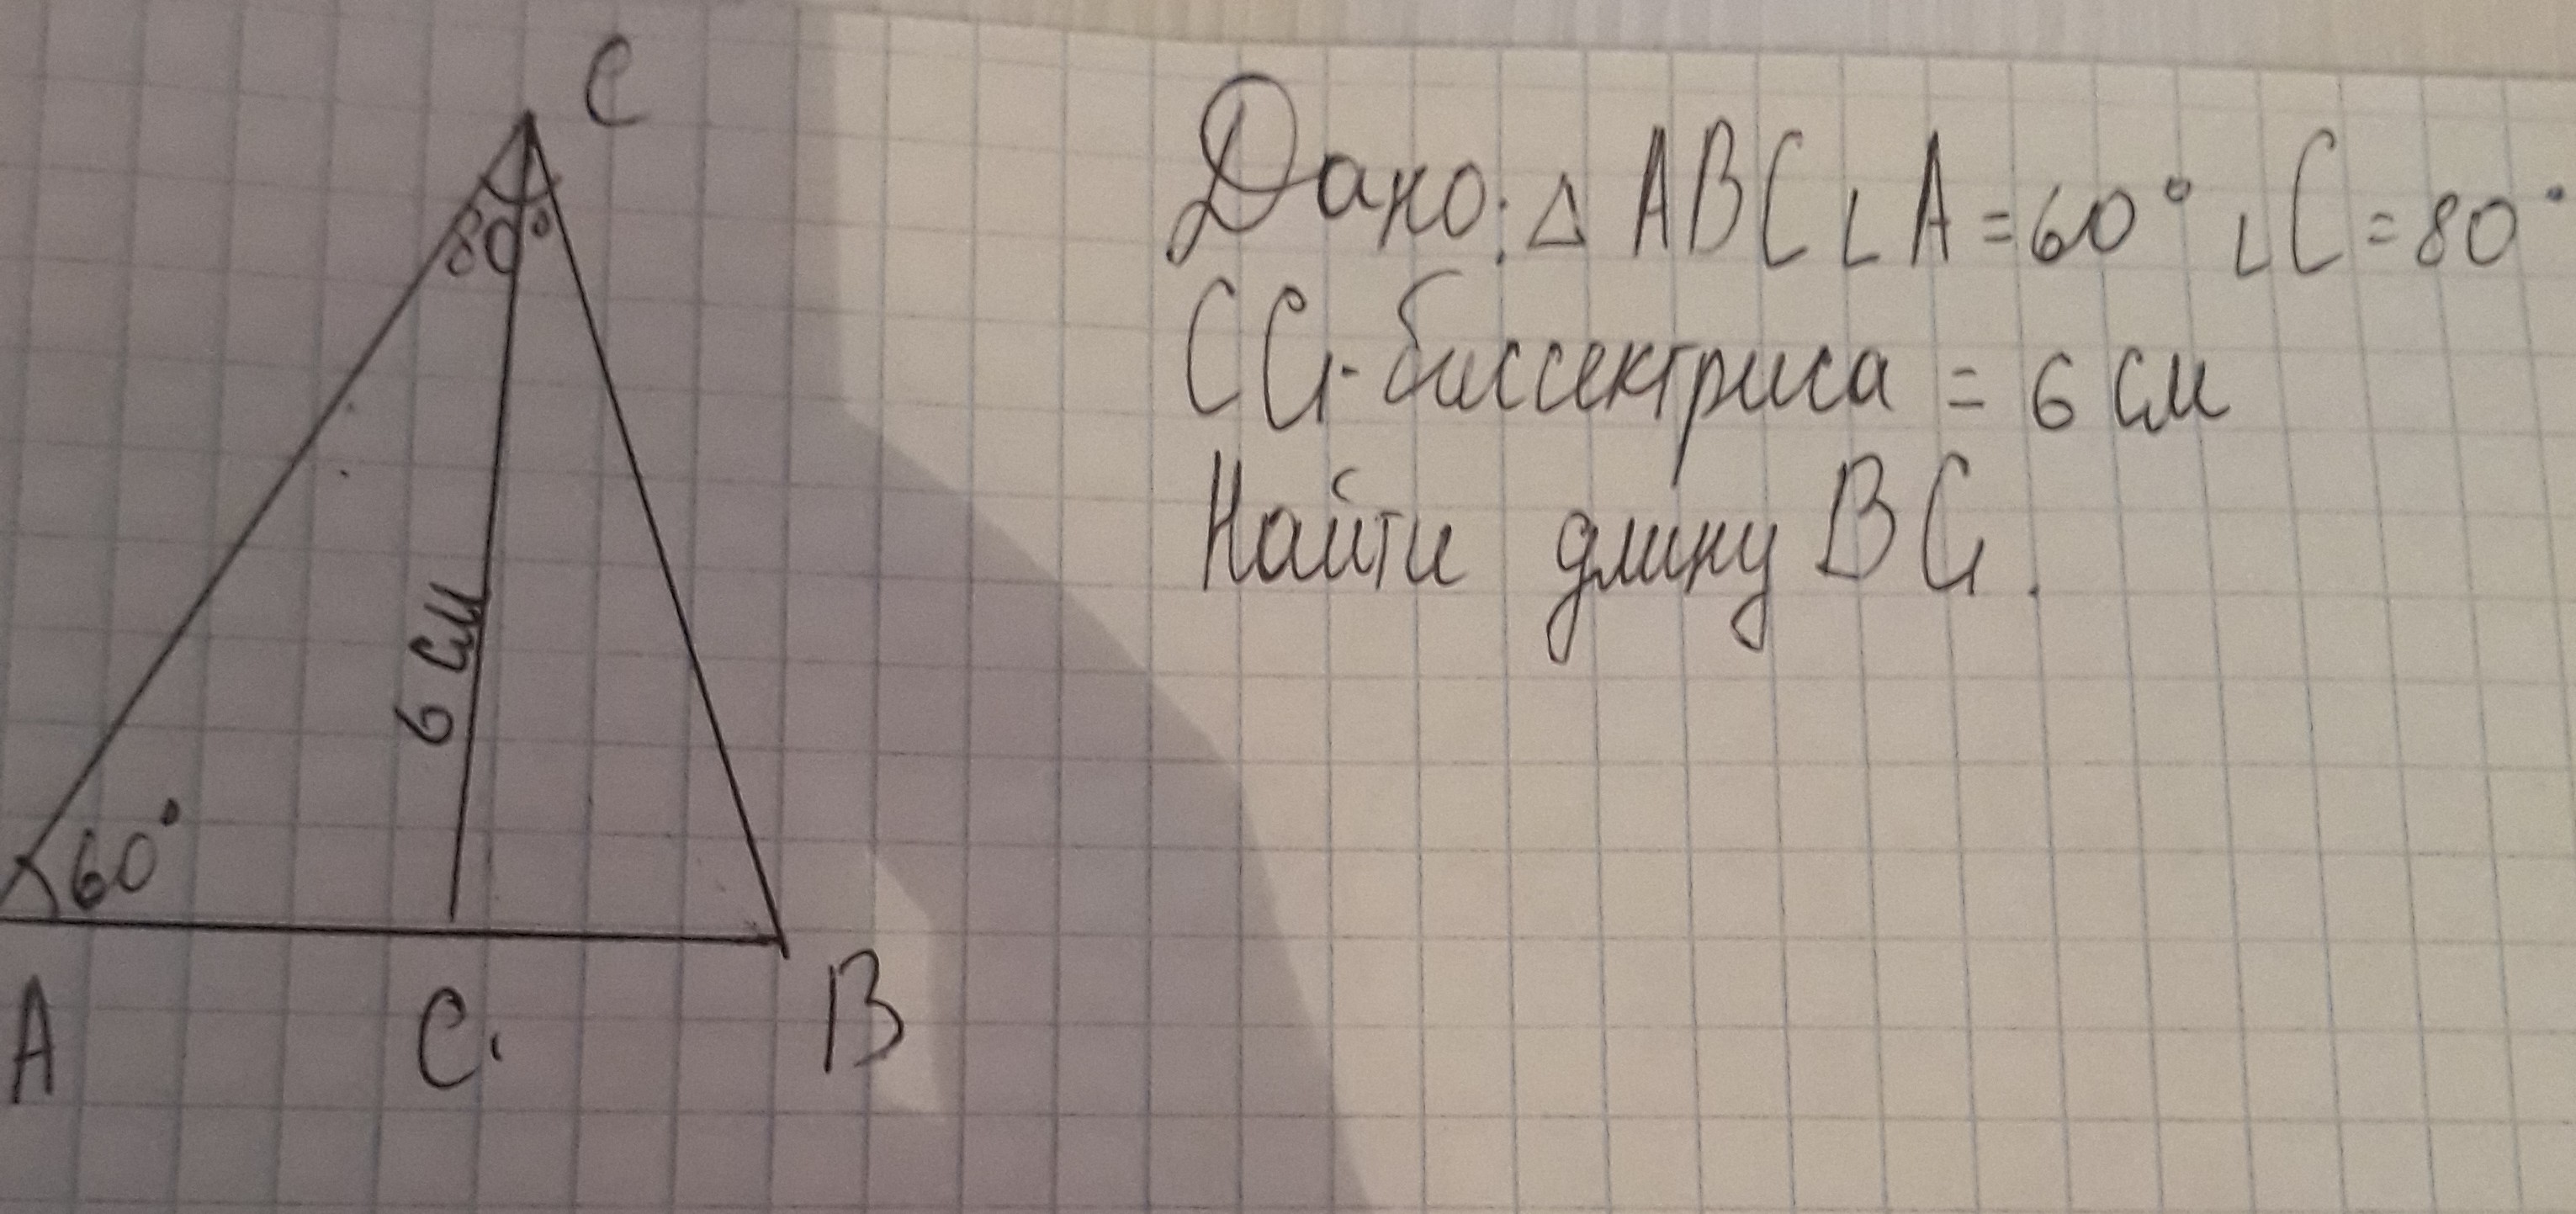 C
80°
6 см
60°
A
C₁
B
Дано: △ ABC ∟A = 60° ∟C = 80°
CC₁ - биссектриса = 6 см
Найти длину BC₁.